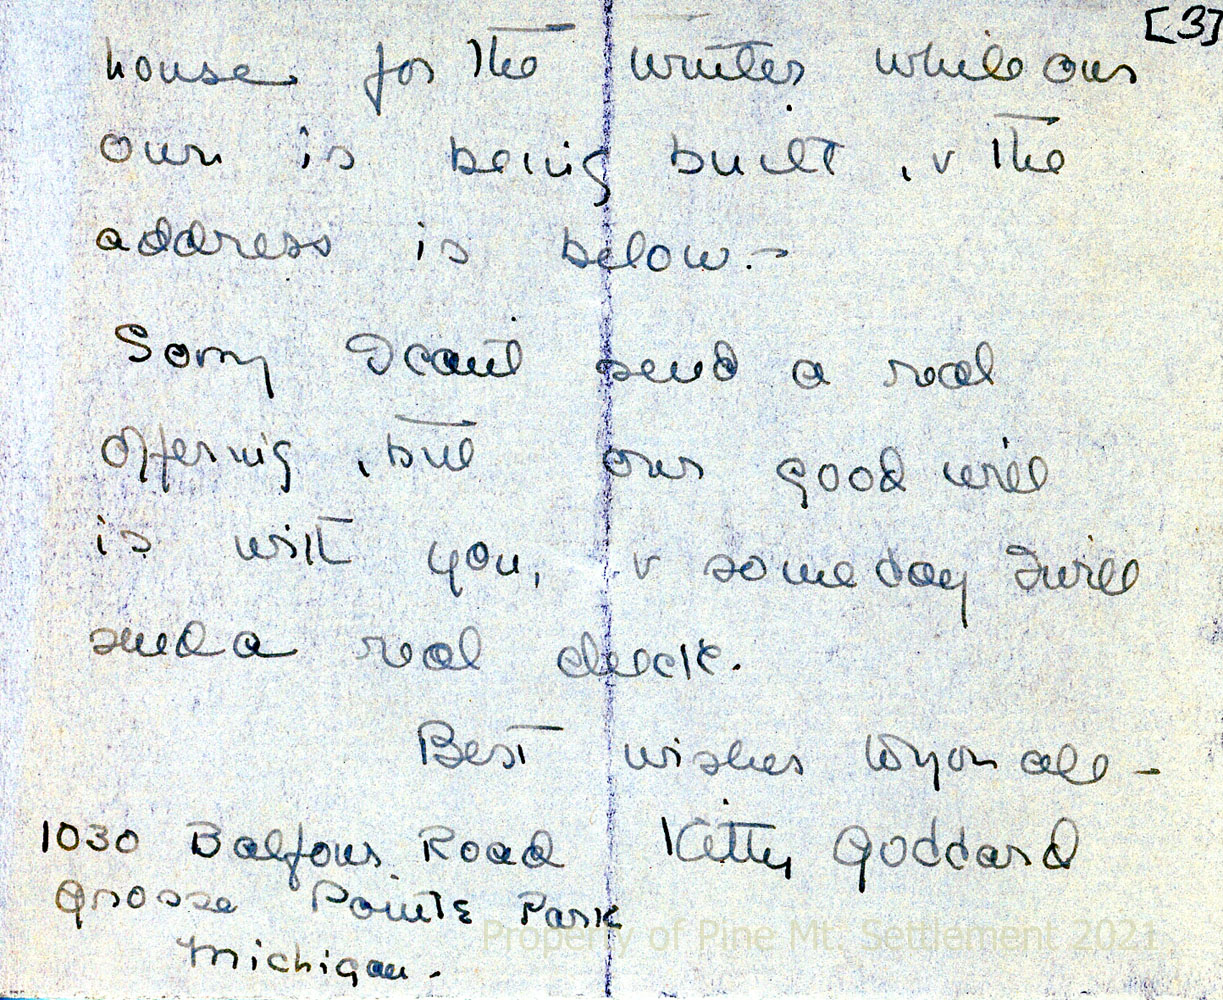 [3]
house for the winter while our
own is being built, & the
address is below. -
Sorry I can't send a real
offering, but our good will
is with you, & someday I will
send a real check.
Best wishes to you all -
Kitty Goddard
1030 Balfour Road
Grosse Pointe Park
Michigan.
Property of Pine Mt. Settlement 2021